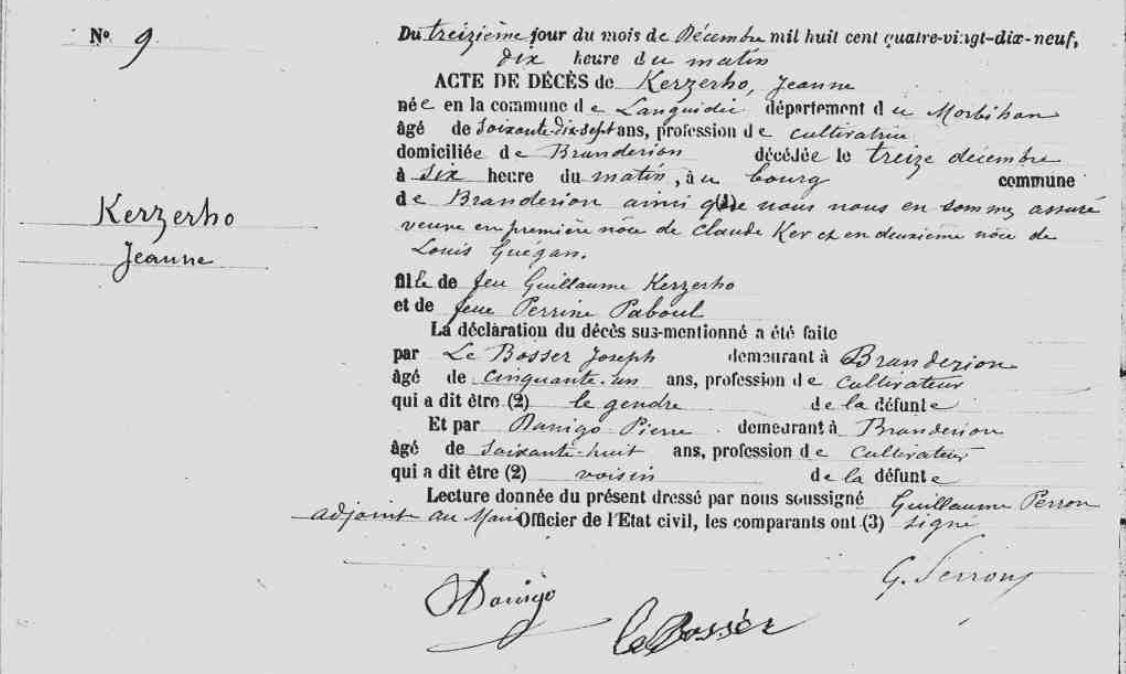 N° 9
Du treizième jour du mois de Décembre mil huit cent quatre-vingt-dix-neuf,
dix heure du matin
ACTE DE DÉCÈS de Kerzerho, Jeanne
née en la commune de Languidic département du Morbihan
âgé de soixante-dix-sept ans, profession de cultivatrice
domiciliée de Branderion décédée le treize décembre
à six heure du matin, au bourg commune
de Branderion ainsi que nous nous en sommes assuré
veuve en première nôce de Claude Ker et en deuxième nôce de
Louis Guégan.
Kerzerho
Jeanne
fille de feu Guillaume Kerzerho
et de feue Perrine Paboul
La déclaration du décès sus-mentionné a été faite
par Le Bosser Joseph demeurant à Branderion
âgé de cinquante-un ans, profession de cultivateur
qui a dit être (2) le gendre de la défunte
Et par Danigo Pierre demeurant à Branderion
âgé de soixante-huit ans, profession de cultivateur
qui a dit être (2) voisin de la défunte
Lecture donnée du présent dressé par nous soussigné Guillaume Perron
adjoint au Maire Officier de l'Etat civil, les comparants ont (3) signé
G. Perron
Danigo
Le Bosser